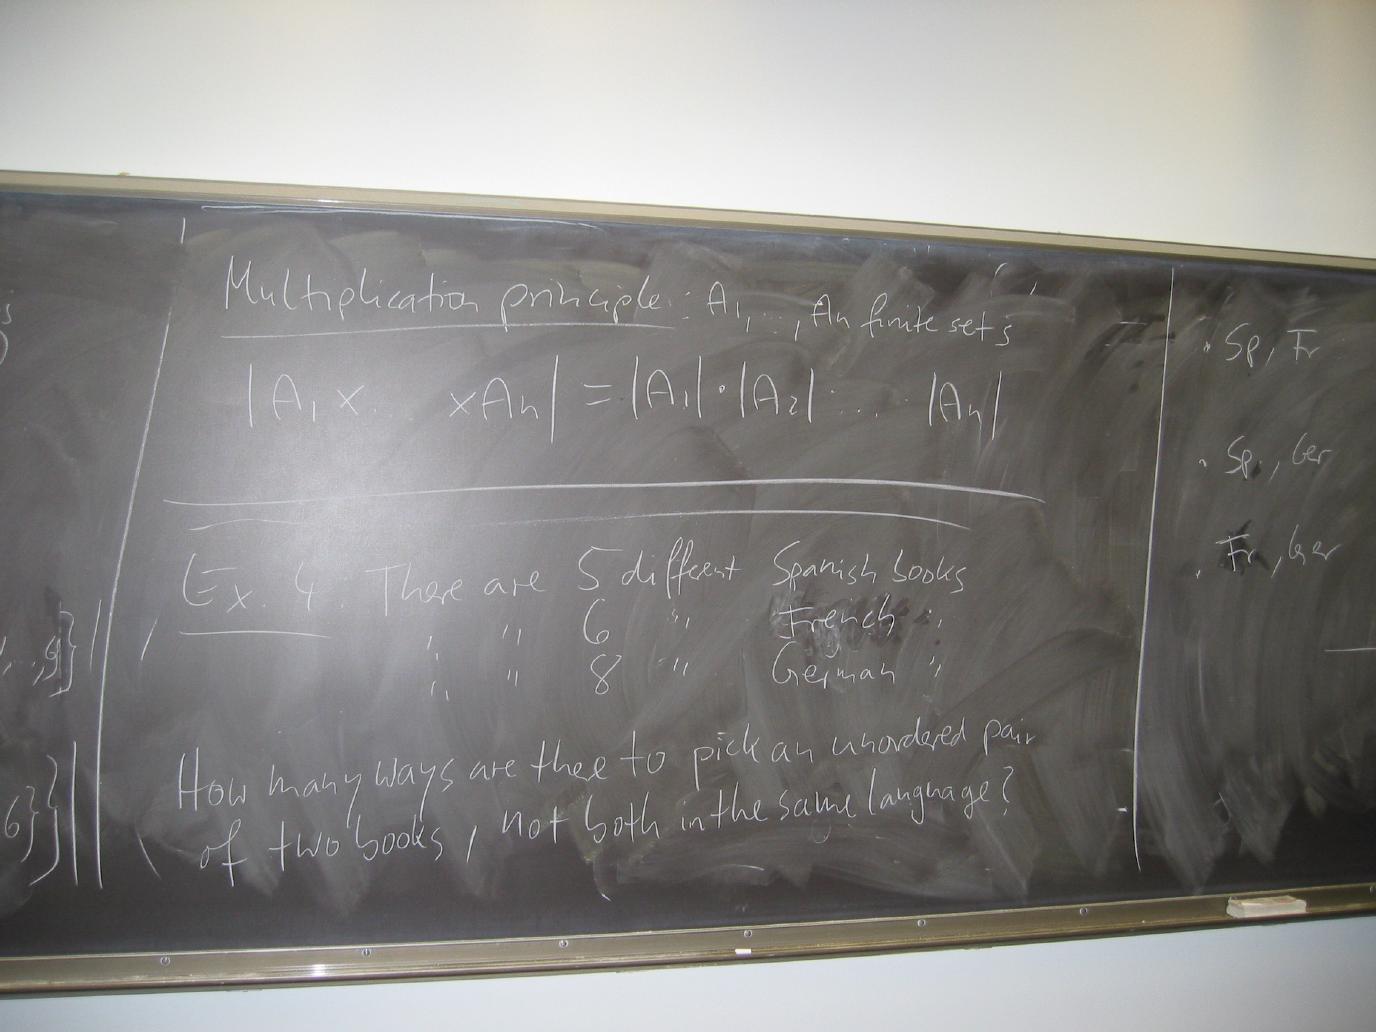 Multiplication principle : A₁, ..., An finite sets
|A₁ x ... xAn| = |A₁| · |A₂| · ... |An|
Ex. 4. There are 5 different Spanish books
" " 6 " French "
" " 8 " German "
How many ways are there to pick an unordered pair
of two books, not both in the same language?
. Sp, Fr
. Sp., Ger
. Fr, Ger
s
)
..., 9}|
6}}|